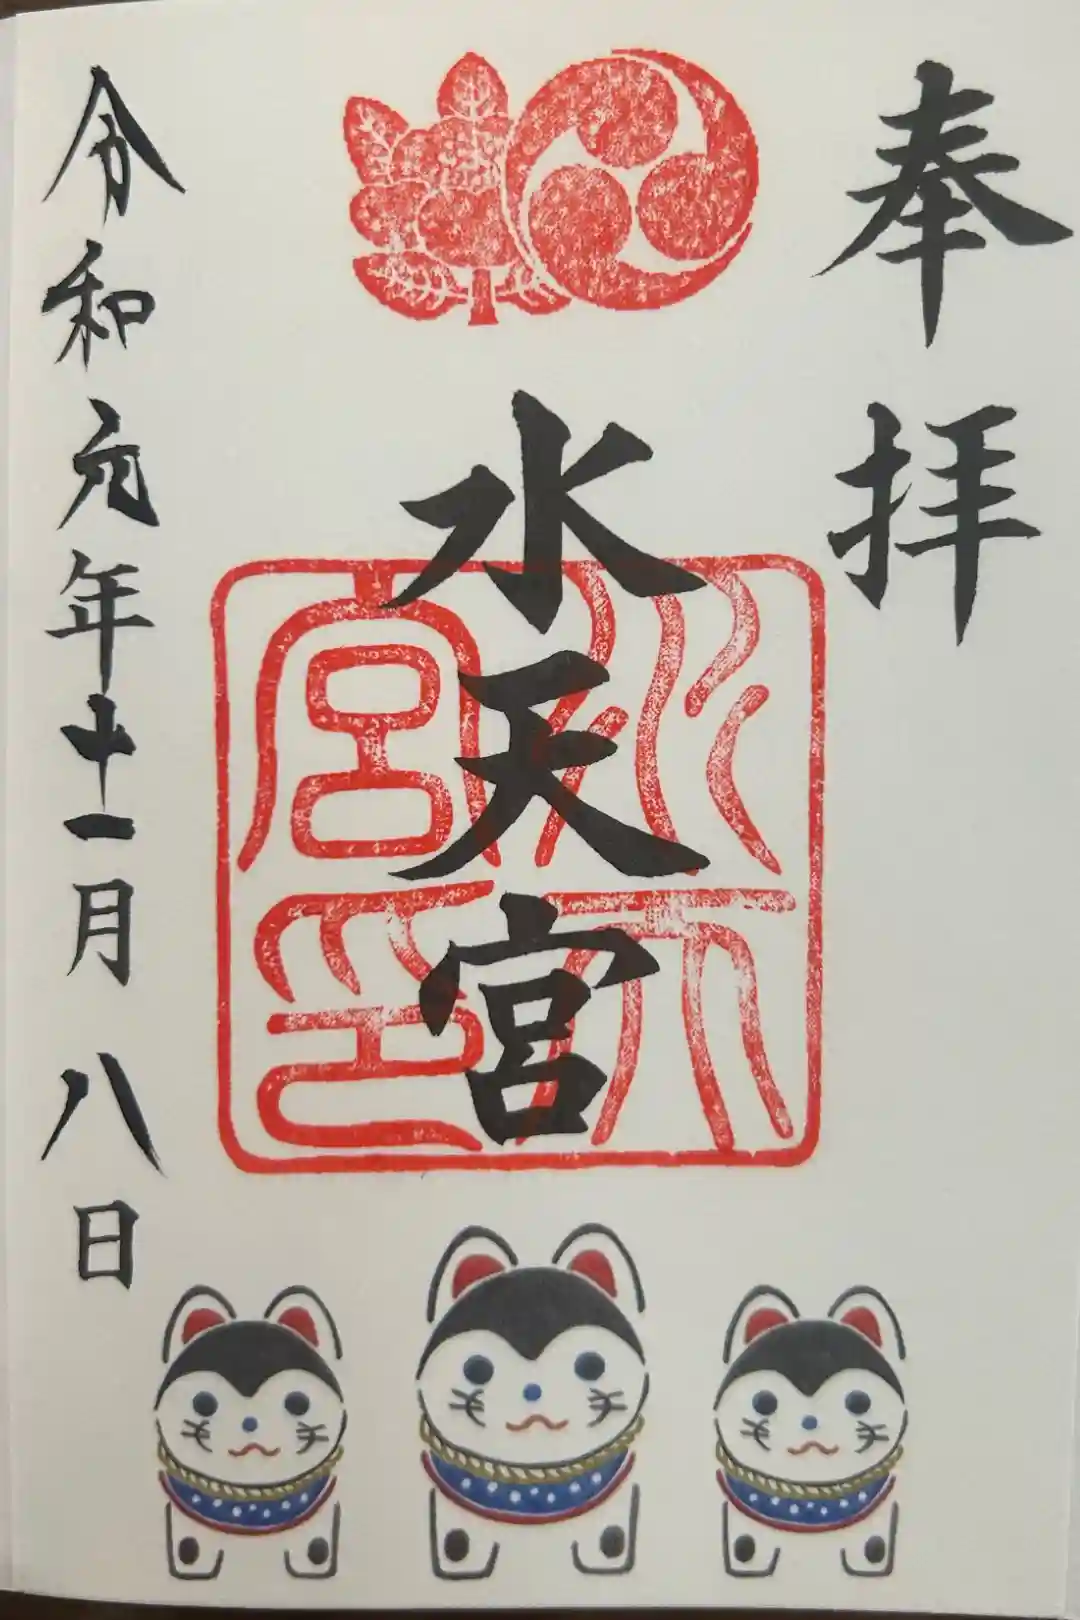 奉拝
水天宮
水天宮印
令和元年十一月八日